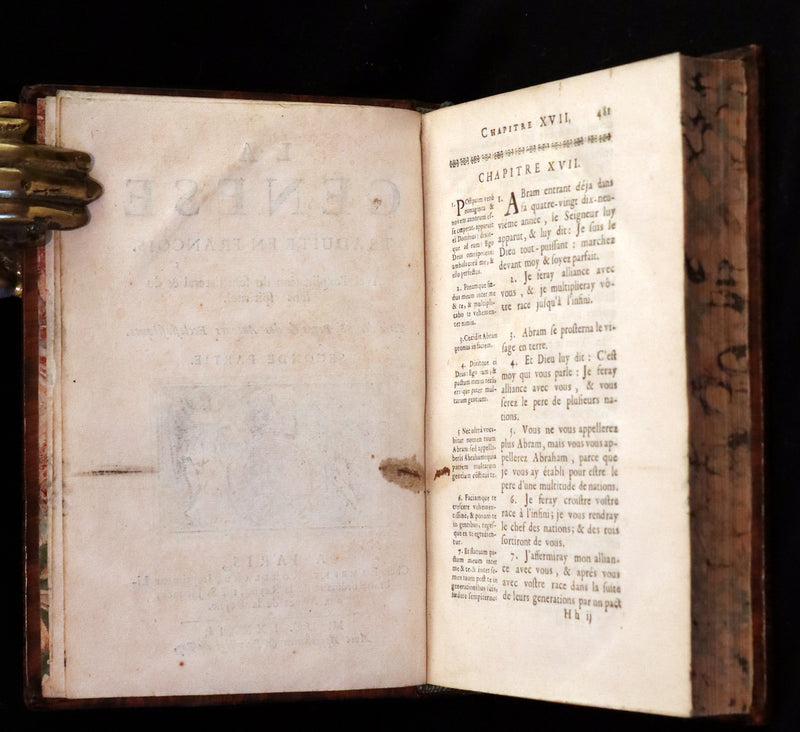 LA
GENESE
TRADUITE EN FRANÇOIS.
SECONDE PARTIE.
A PARIS,
CHAPITRE XVII, 481
CHAPITRE XVII.
1. Postquam verò
nonaginta &
novem annorum es-
se cœperat, apparuit
ei Dominus: dixit-
que ad eum: Ego
Deus omnipotens:
ambula coram me, &
esto perfectus.
2. Ponamque fœ-
dus meum inter me
& te, & multipli-
cabo te vehemen-
ter nimis.
3. Cecidit Abram
pronus in faciem.
4. Dixitque ei
Deus: Ego sum, &
pactum meum tecum
eris que pater mul-
tarum gentium.
5 Nec ultrà voca-
bitur nomen tuum
Abram sed appella-
beris Abraham: quia
patrem multarum
gentium constitui te.
6. Faciamque te
crescere vehemen-
tissime, & ponam te
in gentibus, reges-
que ex te egredien-
tur.
7. Et statuam pa-
ctum meum inter
me & te, & inter se-
men tuum post te in
generationibus suis,
fœdere sempiterno:
1. ABram entrant déja dans
sa quatre-vingt dix-neu-
viéme année, le Seigneur luy
apparut, & luy dit: Je suis le
Dieu tout-puissant: marchez
devant moy & soyez parfait.
2. Je feray alliance avec
vous, & je multiplieray vô-
tre race jusqu'à l'infini.
3. Abram se prosterna le vi-
sage en terre.
4. Et Dieu luy dit: C'est
moy qui vous parle: Je feray
alliance avec vous, & vous
serez le pere de plusieurs na-
tions.
5. Vous ne vous appellerez
plus Abram, mais vous vous ap-
pellerez Abraham, parce que
je vous ay établi pour estre le
pere d'une multitude de nations.
6. Je feray croistre vostre
race à l'infini; je vous rendray
le chef des nations; & des rois
sortiront de vous.
7. J'affermiray mon allian-
ce avec vous, & aprés vous
avec vostre race dans la suite
de leurs generations par un pact
Hh ij